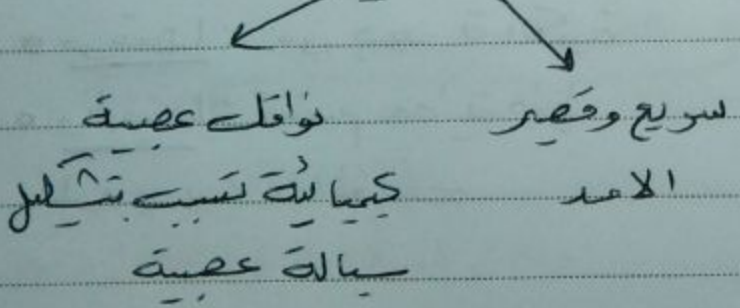 سريع وقصير
الامد
نواقل عصبية
كيميائية تسبب بتشكيل
سيالة عصبية